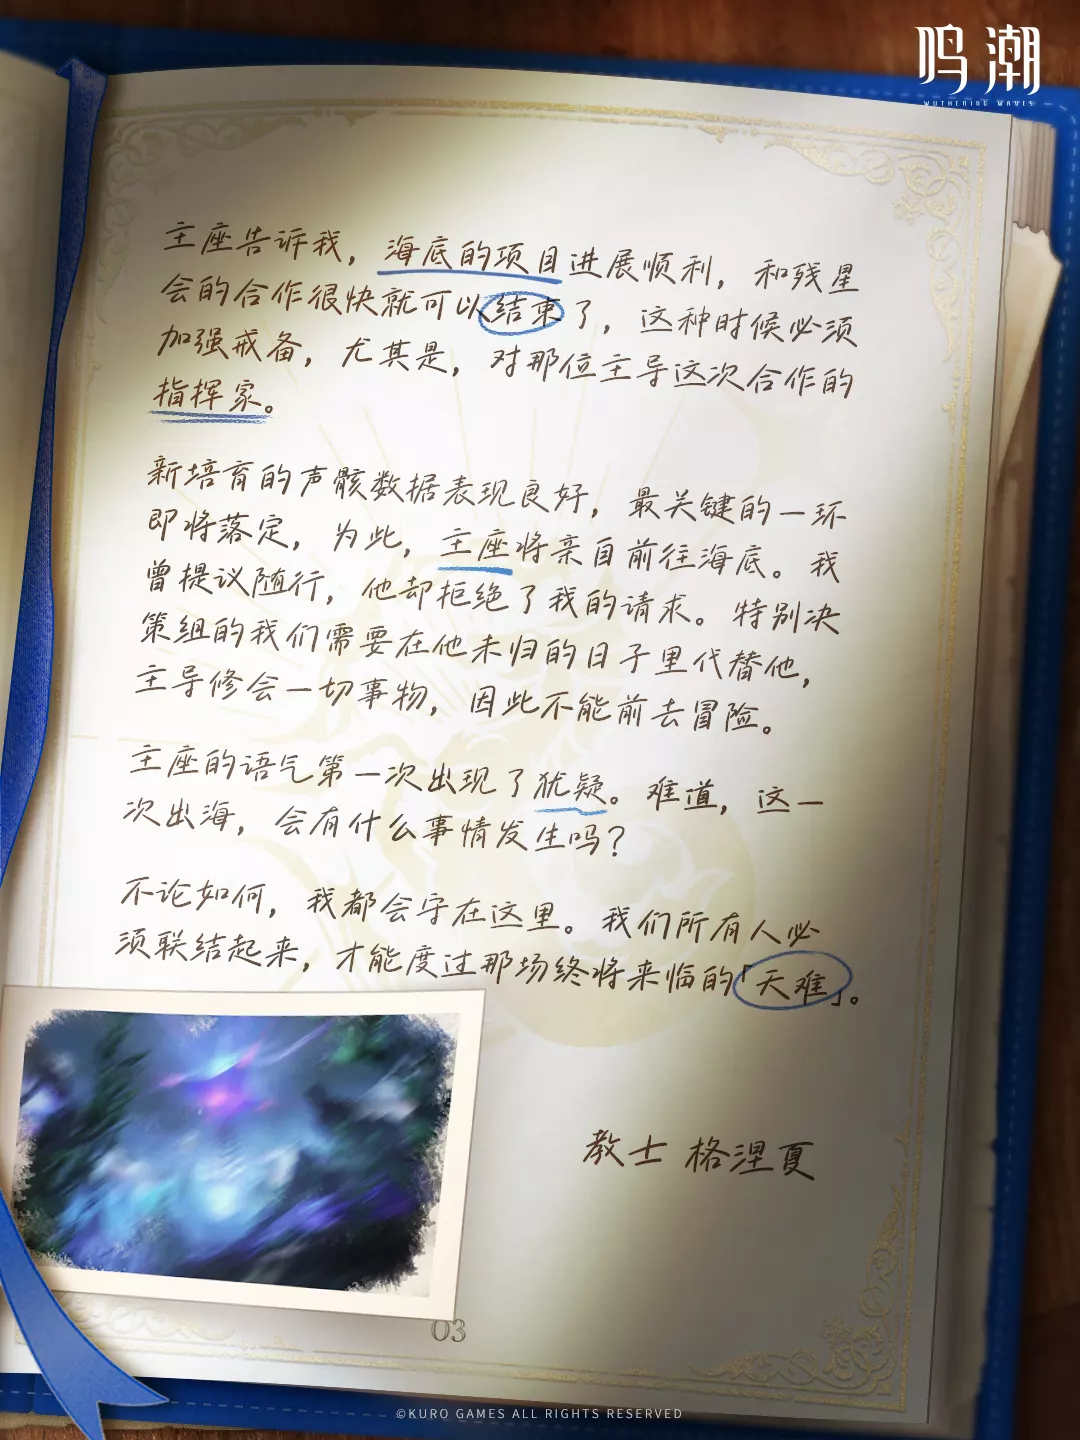 鸣潮
WUTHERING WAVES
主座告诉我，海底的项目进展顺利，和残星
会的合作很快就可以结束了，这种时候必须
加强戒备，尤其是，对那位主导这次合作的
指挥家。
新培育的声骸数据表现良好，最关键的一环
即将落定，为此，主座将亲自前往海底。我
曾提议随行，他却拒绝了我的请求。特别决
策组的我们需要在他未归的日子里代替他，
主导修会一切事物，因此不能前去冒险。
主座的语气第一次出现了犹疑。难道，这一
次出海，会有什么事情发生吗？
不论如何，我都会守在这里。我们所有人必
须联结起来，才能度过那场终将来临的「天难」。
教士 格涅夏
03
©KURO GAMES ALL RIGHTS RESERVED